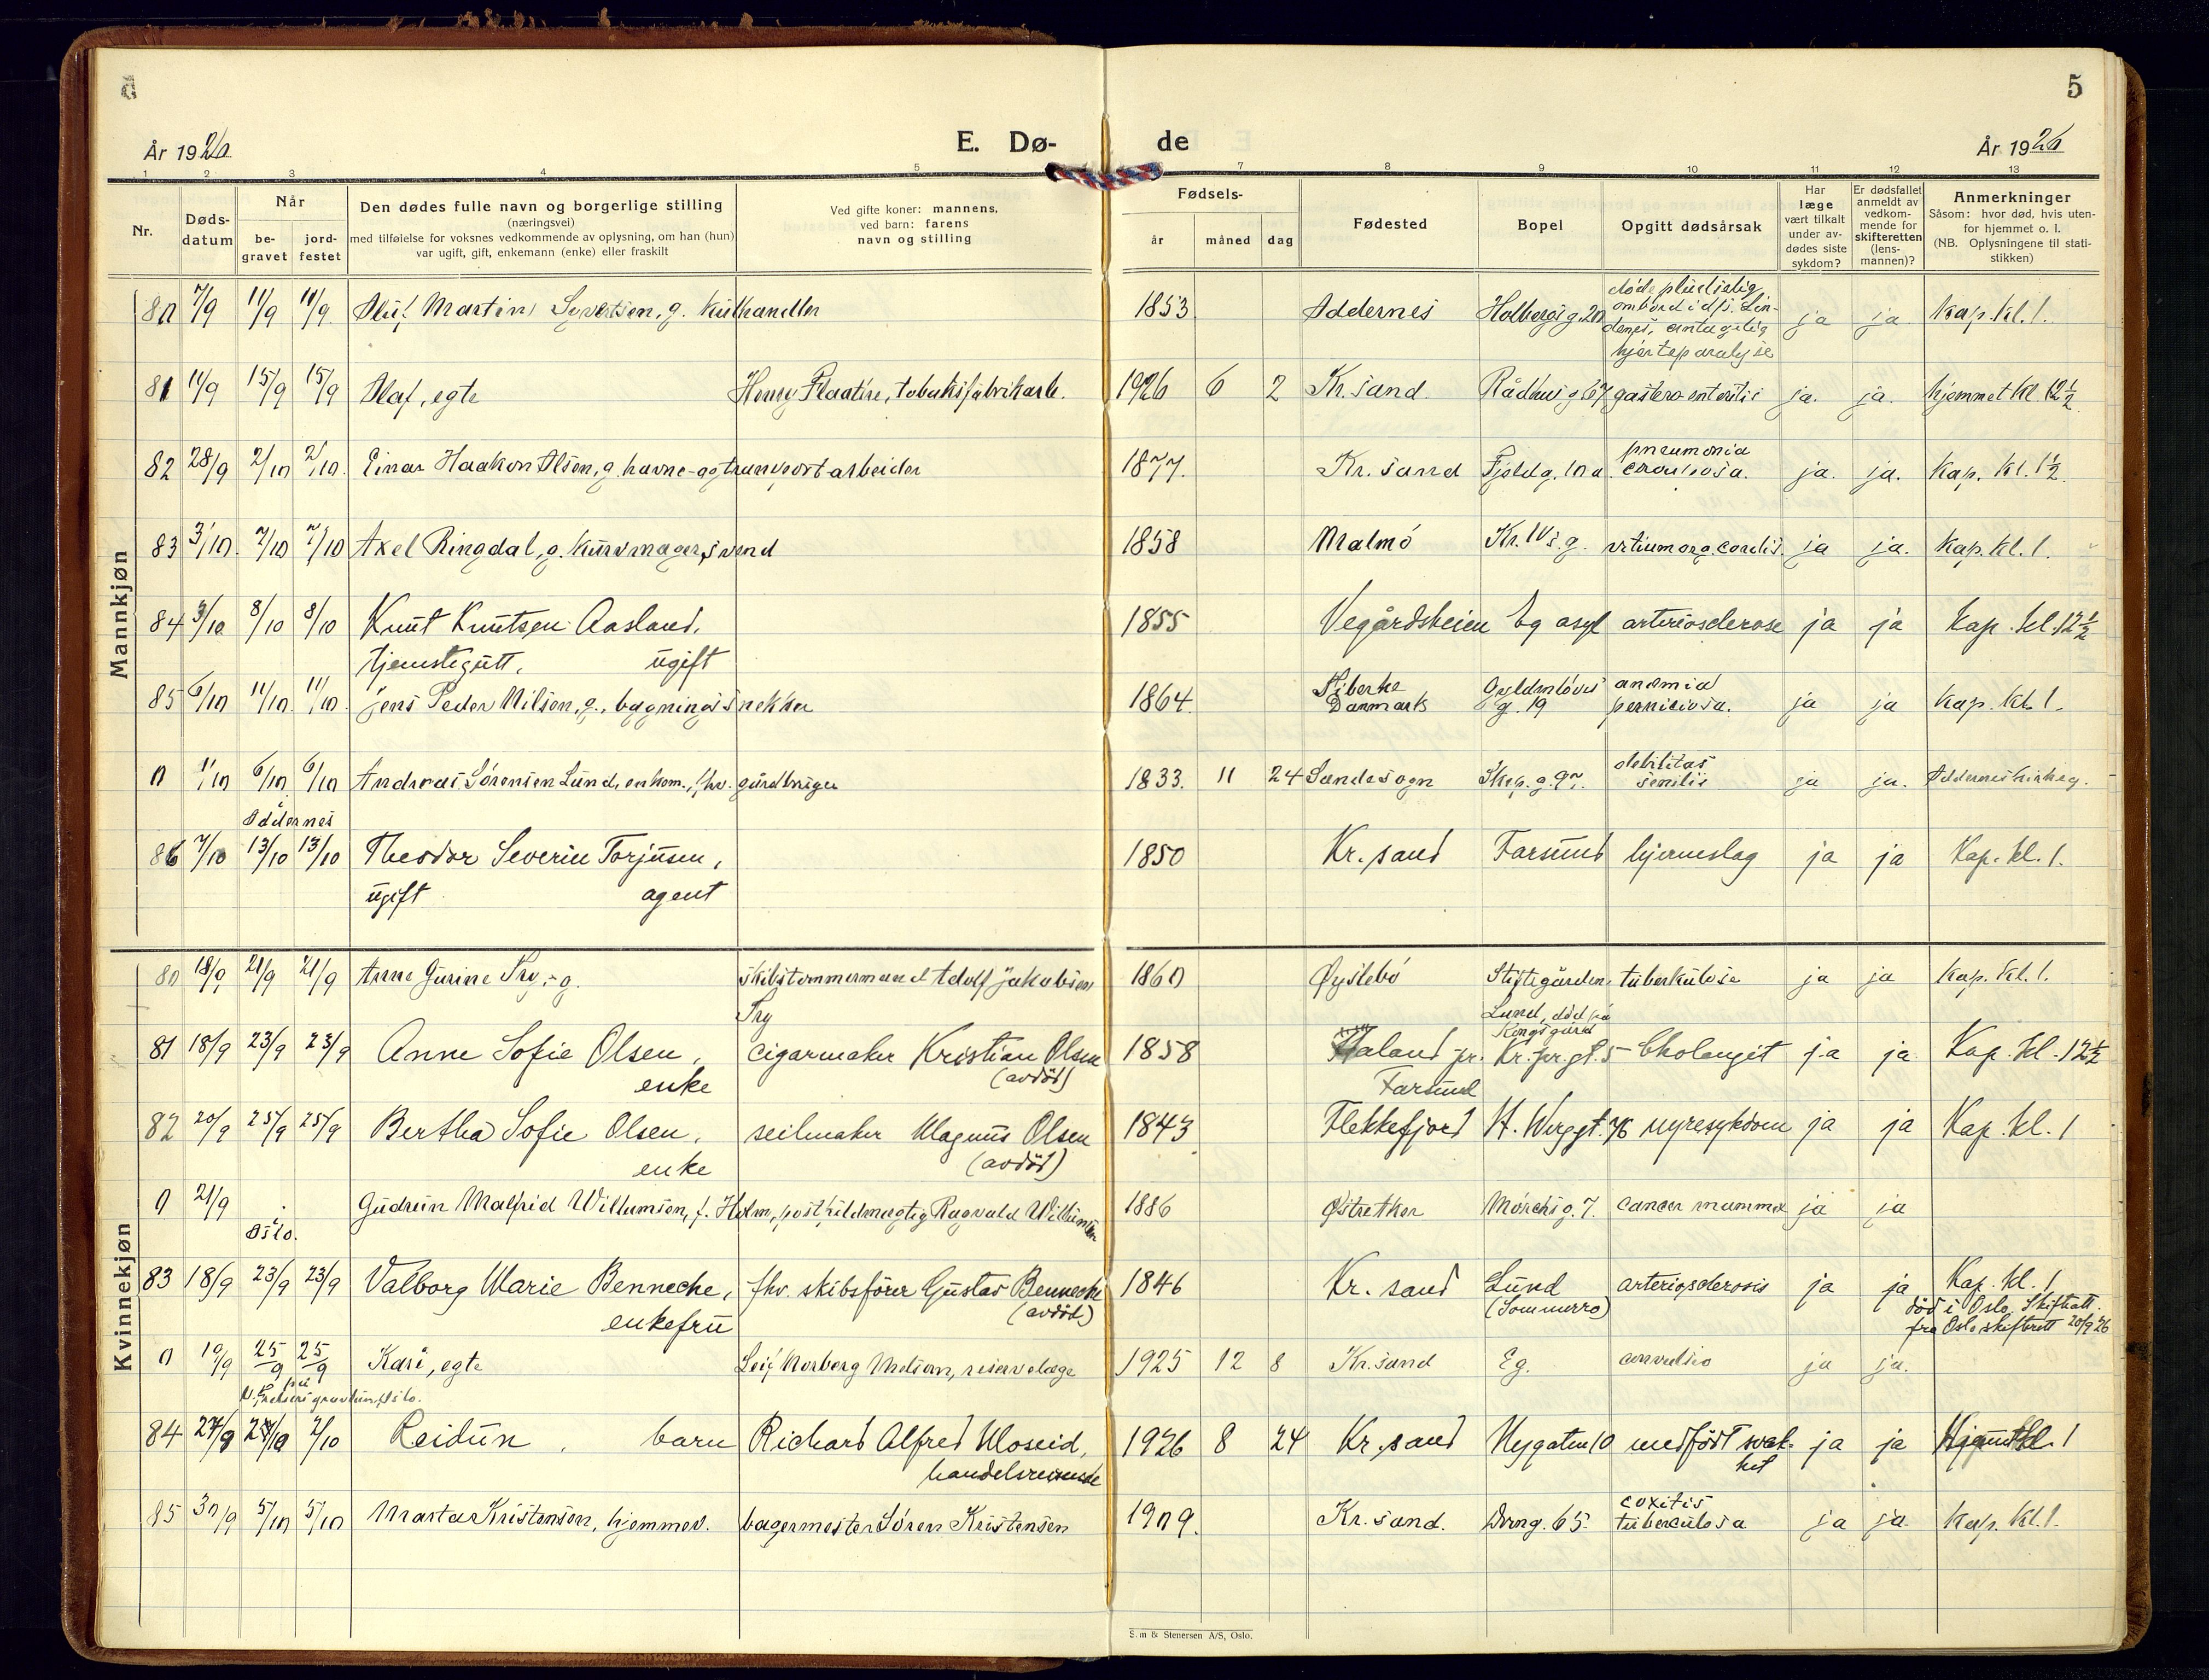 5
År 1926
E. Dø-
de
År 1926
1 2 3 4 5 7 8 9 10 11 12 13
Nr.
Døds-
datum
Når
be-
gravet
jord-
festet
Den dødes fulle navn og borgerlige stilling
(næringsvei)
med tilføielse for voksnes vedkommende av oplysning, om han (hun)
var ugift, gift, enkemann (enke) eller fraskilt
Ved gifte koner: mannens,
ved barn: farens
navn og stilling
Fødsels-
år måned dag
Fødested
Bopel
Opgitt dødsårsak
Har
læge
vært tilkalt
under av-
dødes siste
sykdom?
Er dødsfallet
anmeldt av
vedkom-
mende for
skifteretten
(lens-
mannen)?
Anmerkninger
Såsom: hvor død, hvis uten-
for hjemmet o. l.
(NB. Oplysningene til stati-
stikken)
Mannkjøn
døde pludselig
ombord i d/s. Lin-
80 7/9 11/9 11/9 Oluf Martin Syvertsen, g. kulhandler 1853 Oddernes Holbergs g. 20 denes, antagelig ja ja Kap. kl. 1.
hjerteparalyse
81 11/9 15/9 15/9 Olaf, egte Henry Flaatine, tobaksfabrikarb. 1926 6 2 Kr.sand. Rådhus g 67 gastero enteritis ja. ja. hjemmet kl. 12½
pneumonia
82 28/9 2/10 2/10. Einar Haakon Olsen, g. havne- og transport-arbeider 1877. Kr. sand Fjeldg. 10 a. crouposa. ja. ja. Kap. kl. 1½
83 3/10. 7/10 7/10 Axel Ringdal, g. kurvmagersvend 1858 Malmö Kr. IVs. g. vitium org. cordis ja ja. Kap. kl. 1.
84 3/10 8/10 8/10 Knut Knutsen Aasland, 1855 Vegårdsheien Eg asyl arteriosclerose ja ja Kap. kl. 12½
tjenstegutt, ugift
85 6/10 11/10. 11/10. Jens Peder Nilsen, g., bygningssnekker 1864. Tiberke Gyldenløves anæmia ja ja Kap. kl. 1.
Danmark g. 19 perniciosa.
debilitas
0 1/10 6/10 6/10 Andreas Sørensen Lund, enkem., fhv. gårdbruger 1833. 11 24 Landesogn Skip. g. senilis ja ja. Oddernes kirkeg.
i
Oddernes
86 7/10 13/10 13/10 Theodor Severin Torjusen, 1850 Kr. sand Farsund hjerneslag ja ja Kap. kl. 1.
ugift agent
Kvinnekjøn
80 18/9 21/9 21/9 Anne Gurine Try, g. skibstømmermand Adolf Jakobsen 1860 Øyslebö Stiftsgården, tuberkulose ja ja Kap. kl. 1.
Try Lund, død på
Kongsgård
81 18/9 23/9 23/9 Anne Sofie Olsen, cigarmaker Kristian Olsen 1858 Haland pr. Kr. pr. gt. 5 Cholangit ja ja Kap. kl. 12½
enke (avdöd) Farsund
82 20/9 25/9 25/9 Bertha Sofie Olsen, seilmaker Magnus Olsen 1843 Flekkefjord H. Werg gt. 76 nyresykdom ja ja Kap. kl. 1
enke (avdöd)
0 21/9 Gudrun Malfrid Willumsen, f. Holm, postfuldmægtig Ragvald Willumsen 1886 Østre Moker Mørchs g. 7. cancer mamma ja ja
i
Oslo.
83 18/9 23/9 23/9 Valborg Marie Bennecke, fhv. skibsförer Gustav Bennecke 1846 Kr. sand Lund arteriosclerosis ja ja Kap. kl. 1
enkefru (avdöd) (Sommerro) död i Oslo. Skifteatt.
fra Oslo skifterett 20/9 26
0 19/9 25/9 25/9 Kari, egte Leif Norberg Nielsen, reservelæge 1925 12 8 Kr.sand Eg. convulsio ja ja.
på
V. Frelsers gravlund, Oslo.
84 27/9 2/10 Reidun, barn Richard Alfred Moseid, 1926 8 24 Kr. sand Nygaten 10 medfödt svak- ja ja Hjemmet kl. 1
handelsreisende het
coxitis
85 30/9 5/10 5/10 Marta Kristensen, hjemmev. bagermester Sören Kristensen 1909. Kr. sand. Drong. 65 tuberculosa ja ja Kap. kl. 1.
S.m & Stenersen A/S, Oslo.